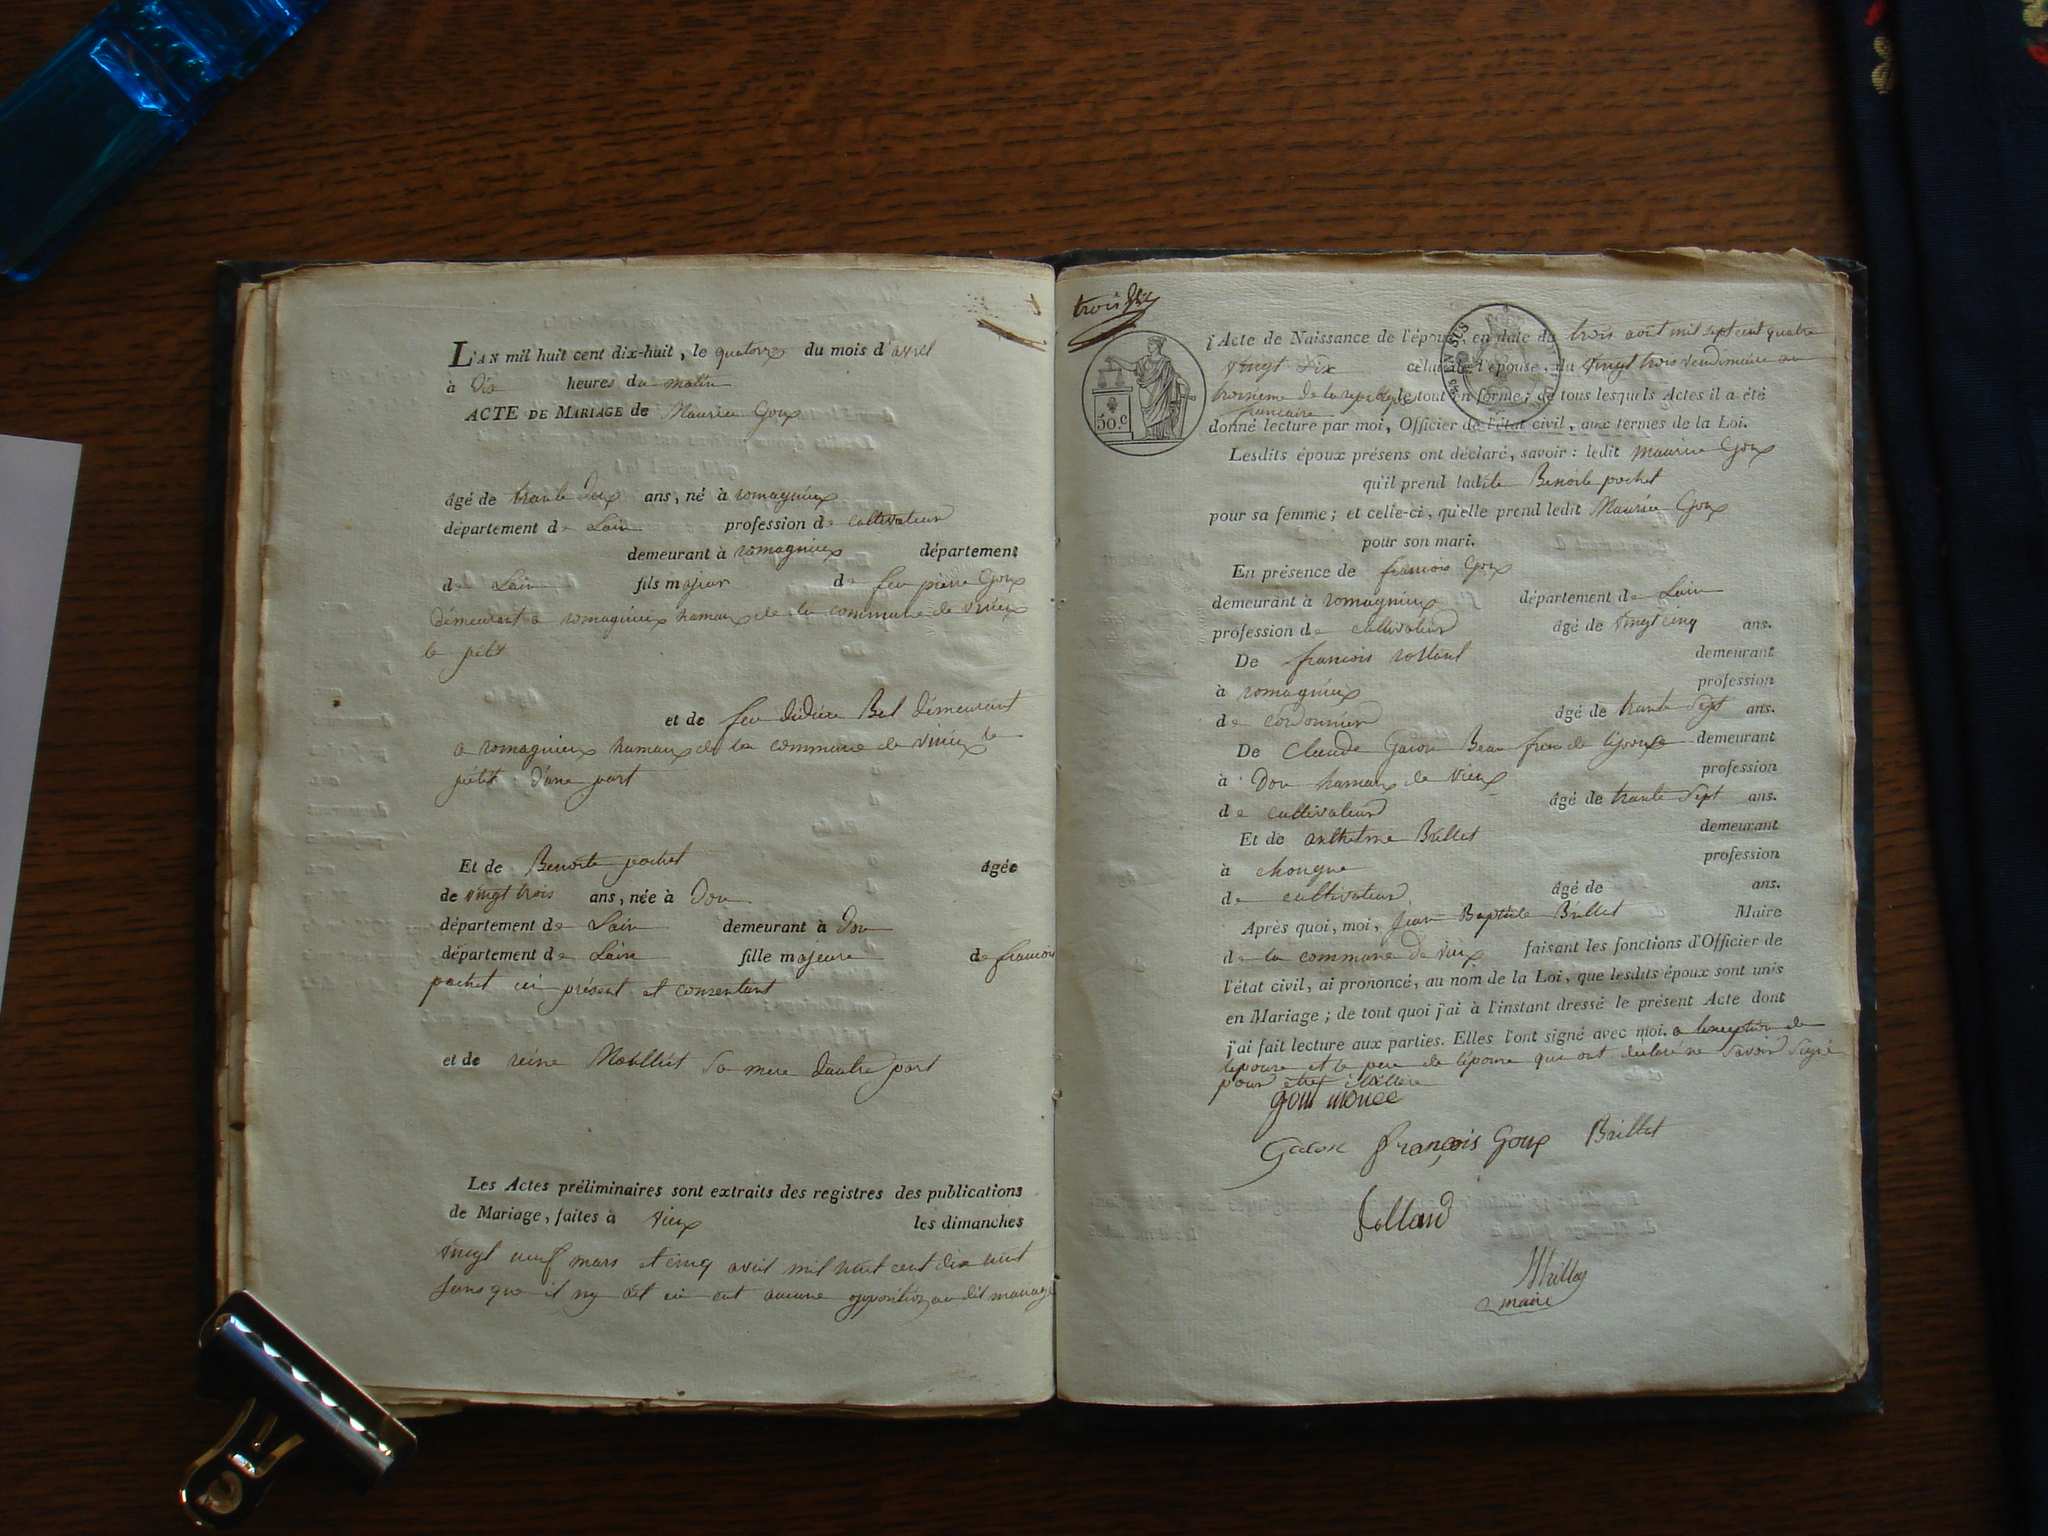 L'AN mil huit cent dix-huit, le quatorze du mois d'avril
à dix heures du matin
ACTE DE MARIAGE de Maurice Goux
âgé de trante deux ans, né à romagnieux
département de Lain profession de cultivateur
demeurant à romagnieux département
de Lain fils majeur de feu pierre Goux
démeurant a romagnieux hamaux de la commune de virieux
le petit
et de feu didière Bel démeurant
a romagnieux hamaux de la commune de virieux le
petit d'une part
Et de Benoite pochet âgée
de vingt trois ans, née à Don
département de Lain demeurant à Don
département de Lain fille majeure de francois
pochet ici présent et consentant
et de reine Sa mere dautre part
Les Actes préliminaires sont extraits des registres des publications
de Mariage, faites à vieux les dimanches
vingt neuf mars et cinq avril mil huit cent dix huit
sans que il ny ait eu aucune opposition au dit mariage
trois
50.c
l'Acte de Naissance de l'époux, en date du trois aout mil sept cent quatre
vingt dix celui de l'épouse, du vingt trois vendemiaire an
troisieme de la republique le tout en forme; de tous lesquels Actes il a été
francaise
donné lecture par moi, Officier de l'état civil, aux termes de la Loi.
Lesdits époux présens ont déclaré, savoir: ledit maurice Goux
qu'il prend ladite Benoite pochet
pour sa femme; et celle-ci, qu'elle prend ledit Maurice Goux
pour son mari.
En présence de francois Goux
demeurant à romagnieux département de Lain
profession de cultivateur âgé de vingt cinq ans.
De francois demeurant
à romagnieux profession
de cordonnier âgé de trante Sept ans.
De Claude Gacon Beau frere de lépouse demeurant
à Don hamaux de vieux profession
de cultivateur âgé de trante Sept ans.
Et de anthelme Brillet demeurant
à chongne profession
de cultivateur âgé de ans.
Après quoi, moi, Jean Baptiste Brillet Maire
de la commune de vieux faisant les fonctions d'Officier de
l'état civil, ai prononcé, au nom de la Loi, que lesdits époux sont unis
en Mariage; de tout quoi j'ai à l'instant dressé le présent Acte dont
j'ai fait lecture aux parties. Elles l'ont signé avec moi. a lexception de
lepouse et le pere de lépouse qui ont declaré ne Savoir Signé
pour
goux
Gacon françois Goux Brillet
maire